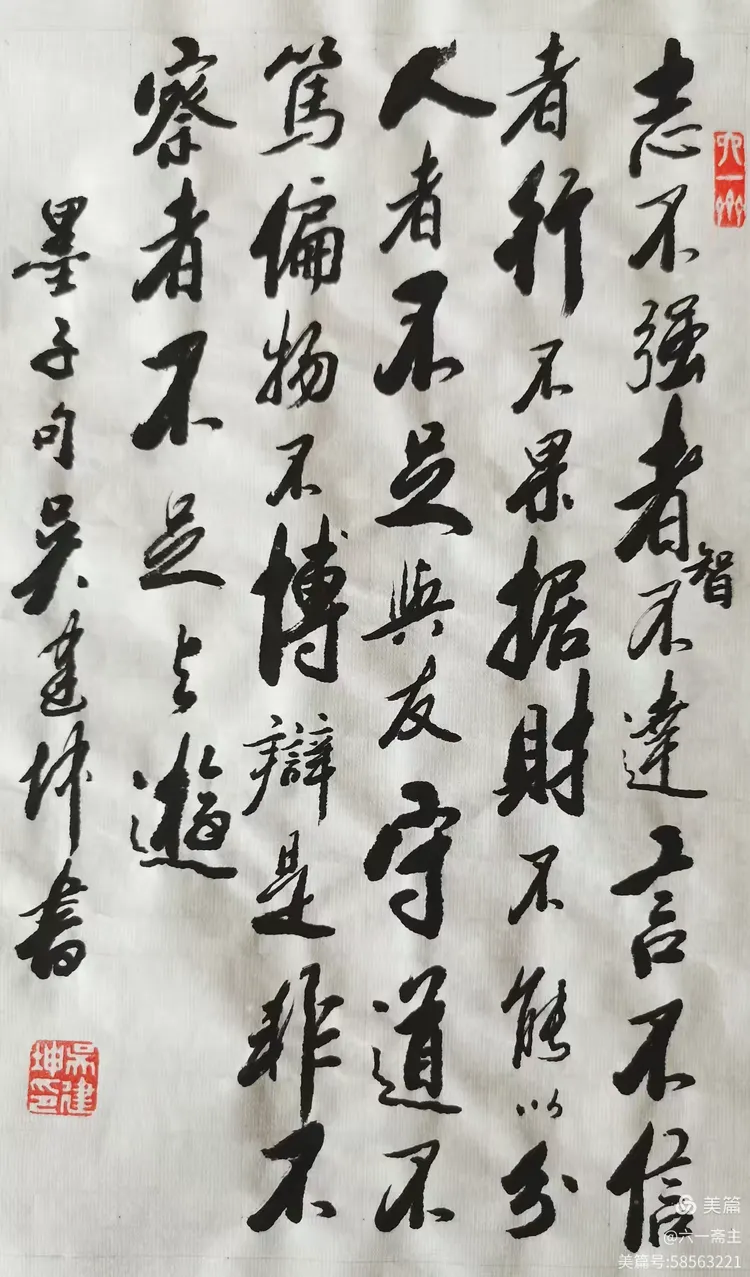 志不强者智不達言不信
者行不果据財不能以分
人者不足與友守道不
篤偏物不博辯是非不
察者不足与遊
墨子句吴建坤書
吴建坤印
美篇
@六一斋主
美篇号:58563221